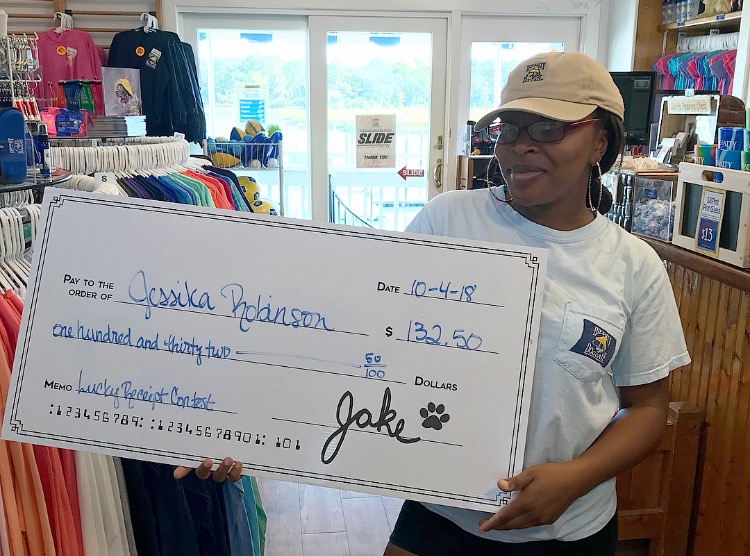 SLIDE
THANK YOU
SLIDE
PAY TO THE ORDER OF Jessika Robinson
DATE 10-4-18
$ 132.50
one hundred and thirty two 50/100 DOLLARS
MEMO Lucky Receipt Contest
Jake
:123456789: :12345678901: 101
S
$13